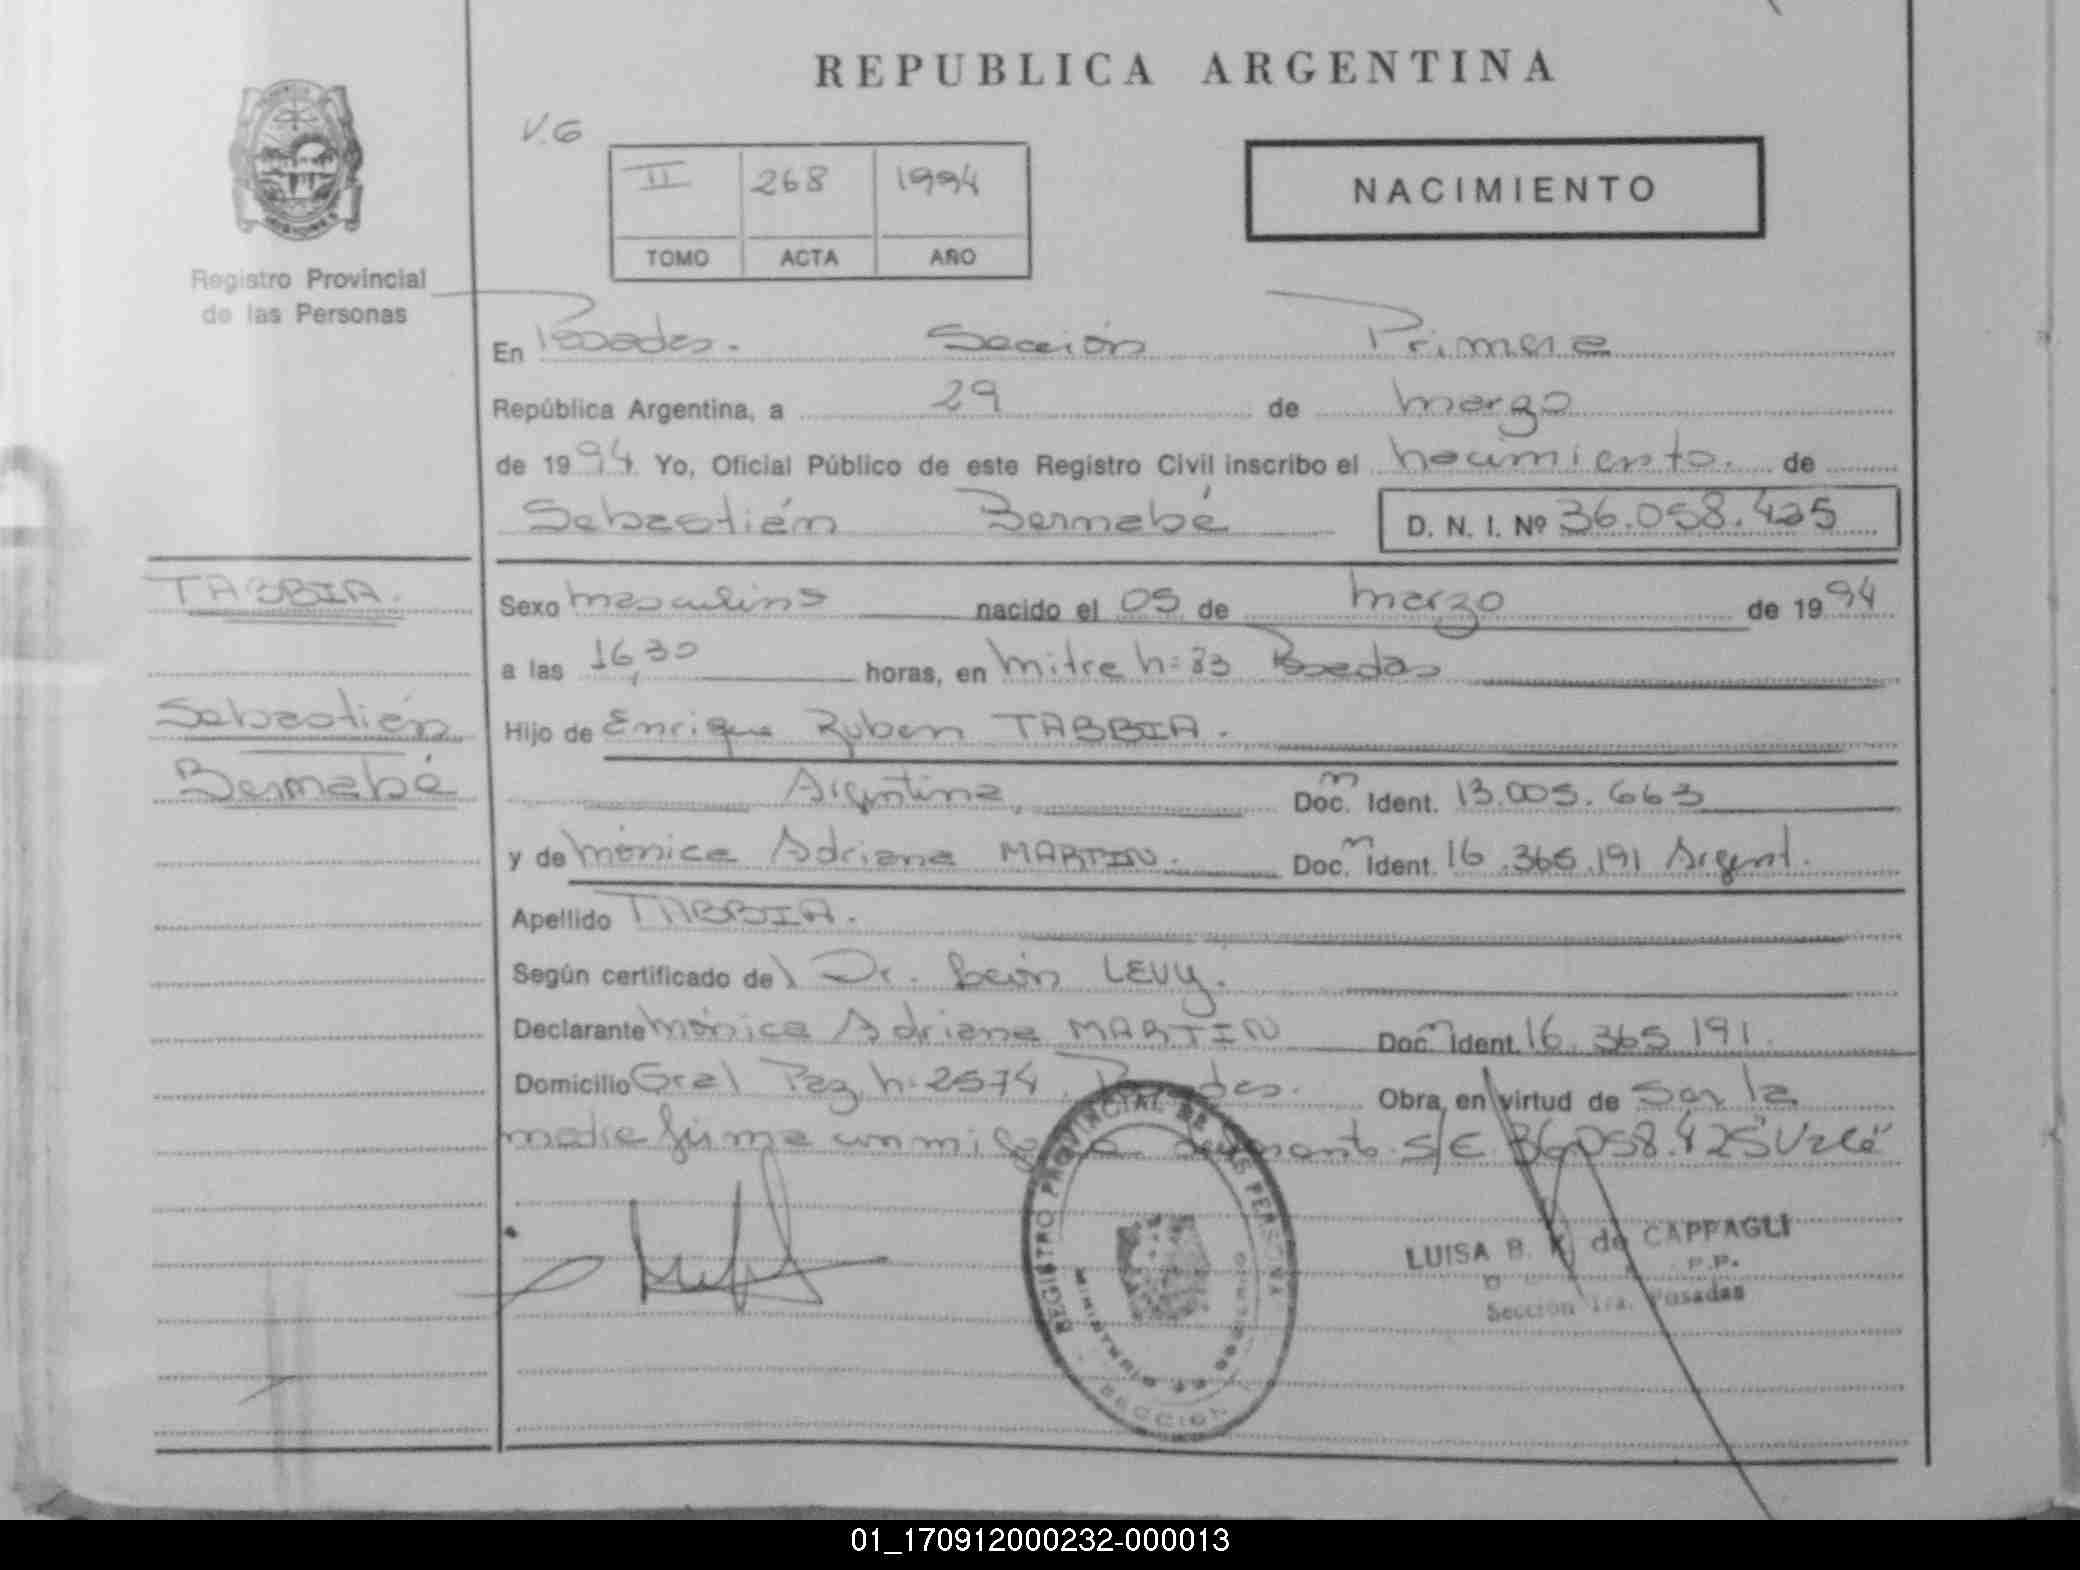 REPUBLICA ARGENTINA
V.G
II 268 1994
TOMO ACTA AÑO
NACIMIENTO
Registro Provincial
de las Personas
En Posadas. Sección Primera
República Argentina, a 29 de marzo
de 1994. Yo, Oficial Público de este Registro Civil inscribo el nacimiento. de
Sebastián Bernabé D. N. I. Nº 36.058.425
TABBIA.
Sebastián
Bernabé
Sexo masculino nacido el 05 de marzo de 1994
a las 16,30 horas, en Mitre n: 83 Posadas
Hijo de Enrique Ruben TABBIA.
Argentina, Doc. Ident. 13.005.663
y de Mónica Adriana MARTIN. Doc. Ident. 16.365.191 Argent.
Apellido TABBIA.
Según certificado del Dr. León LEVY.
Declarante Mónica Adriana MARTIN Doc. Ident. 16.365.191.
Domicilio Gral Paz n: 2574, Posadas. Obra en virtud de Ser la
madre firma conmigo S/E 36.058.425 "Vale"
REGISTRO PROVINCIAL DE LAS PERSONAS
MINISTERIO DE GOBIERNO
SECCION
LUISA B. K. de CAPPAGLI
Sección 1ra. Posadas
01_170912000232-000013